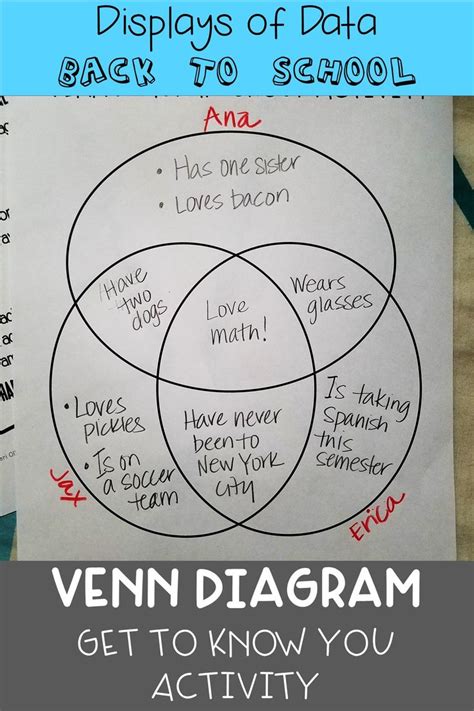 Displays of Data
BACK TO SCHOOL
Ana
• Has one sister
• Loves bacon
Have
two
dogs
Love
math!
Wears
glasses
• Loves
pickles
• Is on
a soccer
team
Have never
been to
New York
City
Is taking
Spanish
this
semester
Jax
Erica
VENN DIAGRAM
GET TO KNOW YOU
ACTIVITY